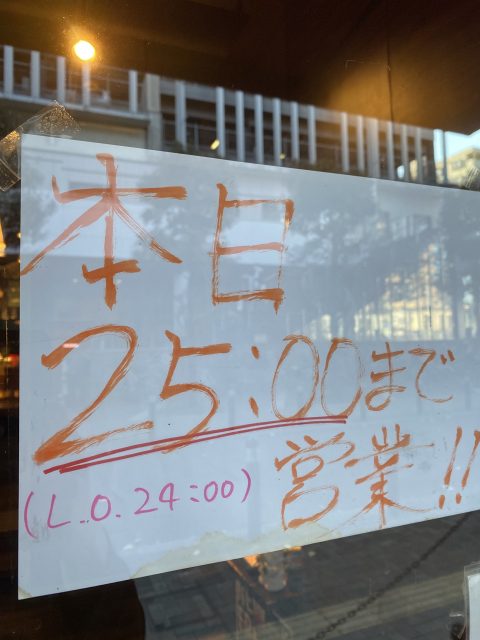 本日
25:00まで
営業!!
(L.O.24:00)